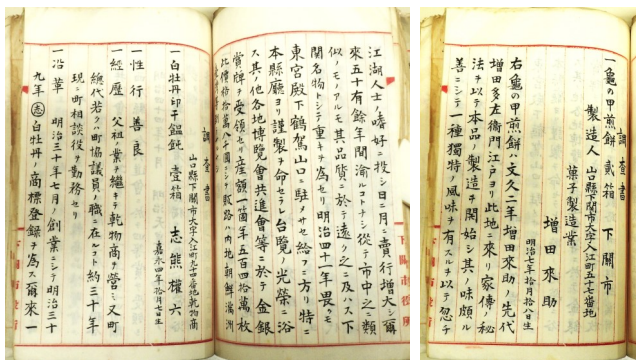 一龜の甲煎餅 貳箱 下關市
製造人 山口縣下關市大字入江町五十七番地
菓子製造業
増田來助
明治七年拾月拾八日生
右龜の甲煎餅ハ文久二年増田來助ノ先代
増田多左衞門江戸ヨリ此地ニ來リ家傳ノ秘
法ヲ以テ本品ノ製造ヲ開始シ其ノ味頗ル
善ニシテ一種獨特ノ風味ヲ有スルヲ以テ忽チ
江湖人士ノ嗜好ニ投シ日ニ月ニ賣行増大シ爾
來五十有餘年間渝ルコトナシ從テ市中之ニ類
似ノモノアルモ其品質ニ於テ遠ク之ニ及ハス下
關名物トシテ重キヲ為セリ明治四十一年畏クモ
東宮殿下鶴駕山口ニ駐メサセ給フニ方リ特ニ
本縣廳ヨリ謹製ヲ命セラレ台覽ノ光榮ニ浴
ス其ノ他各地博覽會共進會等ニ於テ金銀
賞牌ヲ受領セリ産額一箇年五百四拾萬枚
此價格拾萬八千圓ニシテ販路ハ内地朝鮮滿洲
調査書
山口縣下關市大字入江町九十四番地乾物商
一白牡丹印干饂飩 壹箱 志熊權六
嘉永四年拾月七日生
一性行 善良
一經歴 父祖ノ業ヲ繼キ乾物商ヲ營ミ又町
總代若クハ町協議員ノ職ニ在ルコト約三十年
現ニ町相談役ヲ勤務セリ
一沿革 明治三十年七月ノ創業ニシテ明治三十
九年志白牡丹ノ商標登録ヲ為ス爾來一